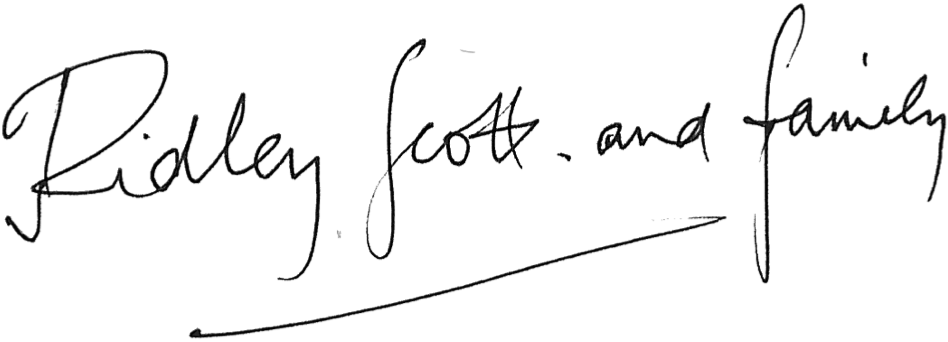 Ridley Scott. and family